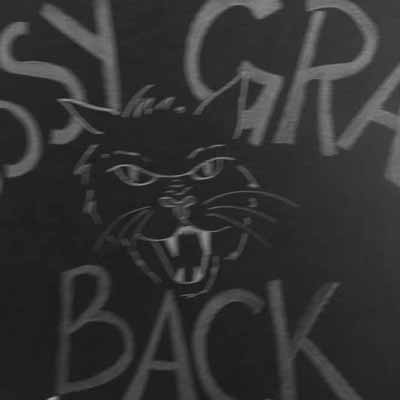 SSY GRA
BACK